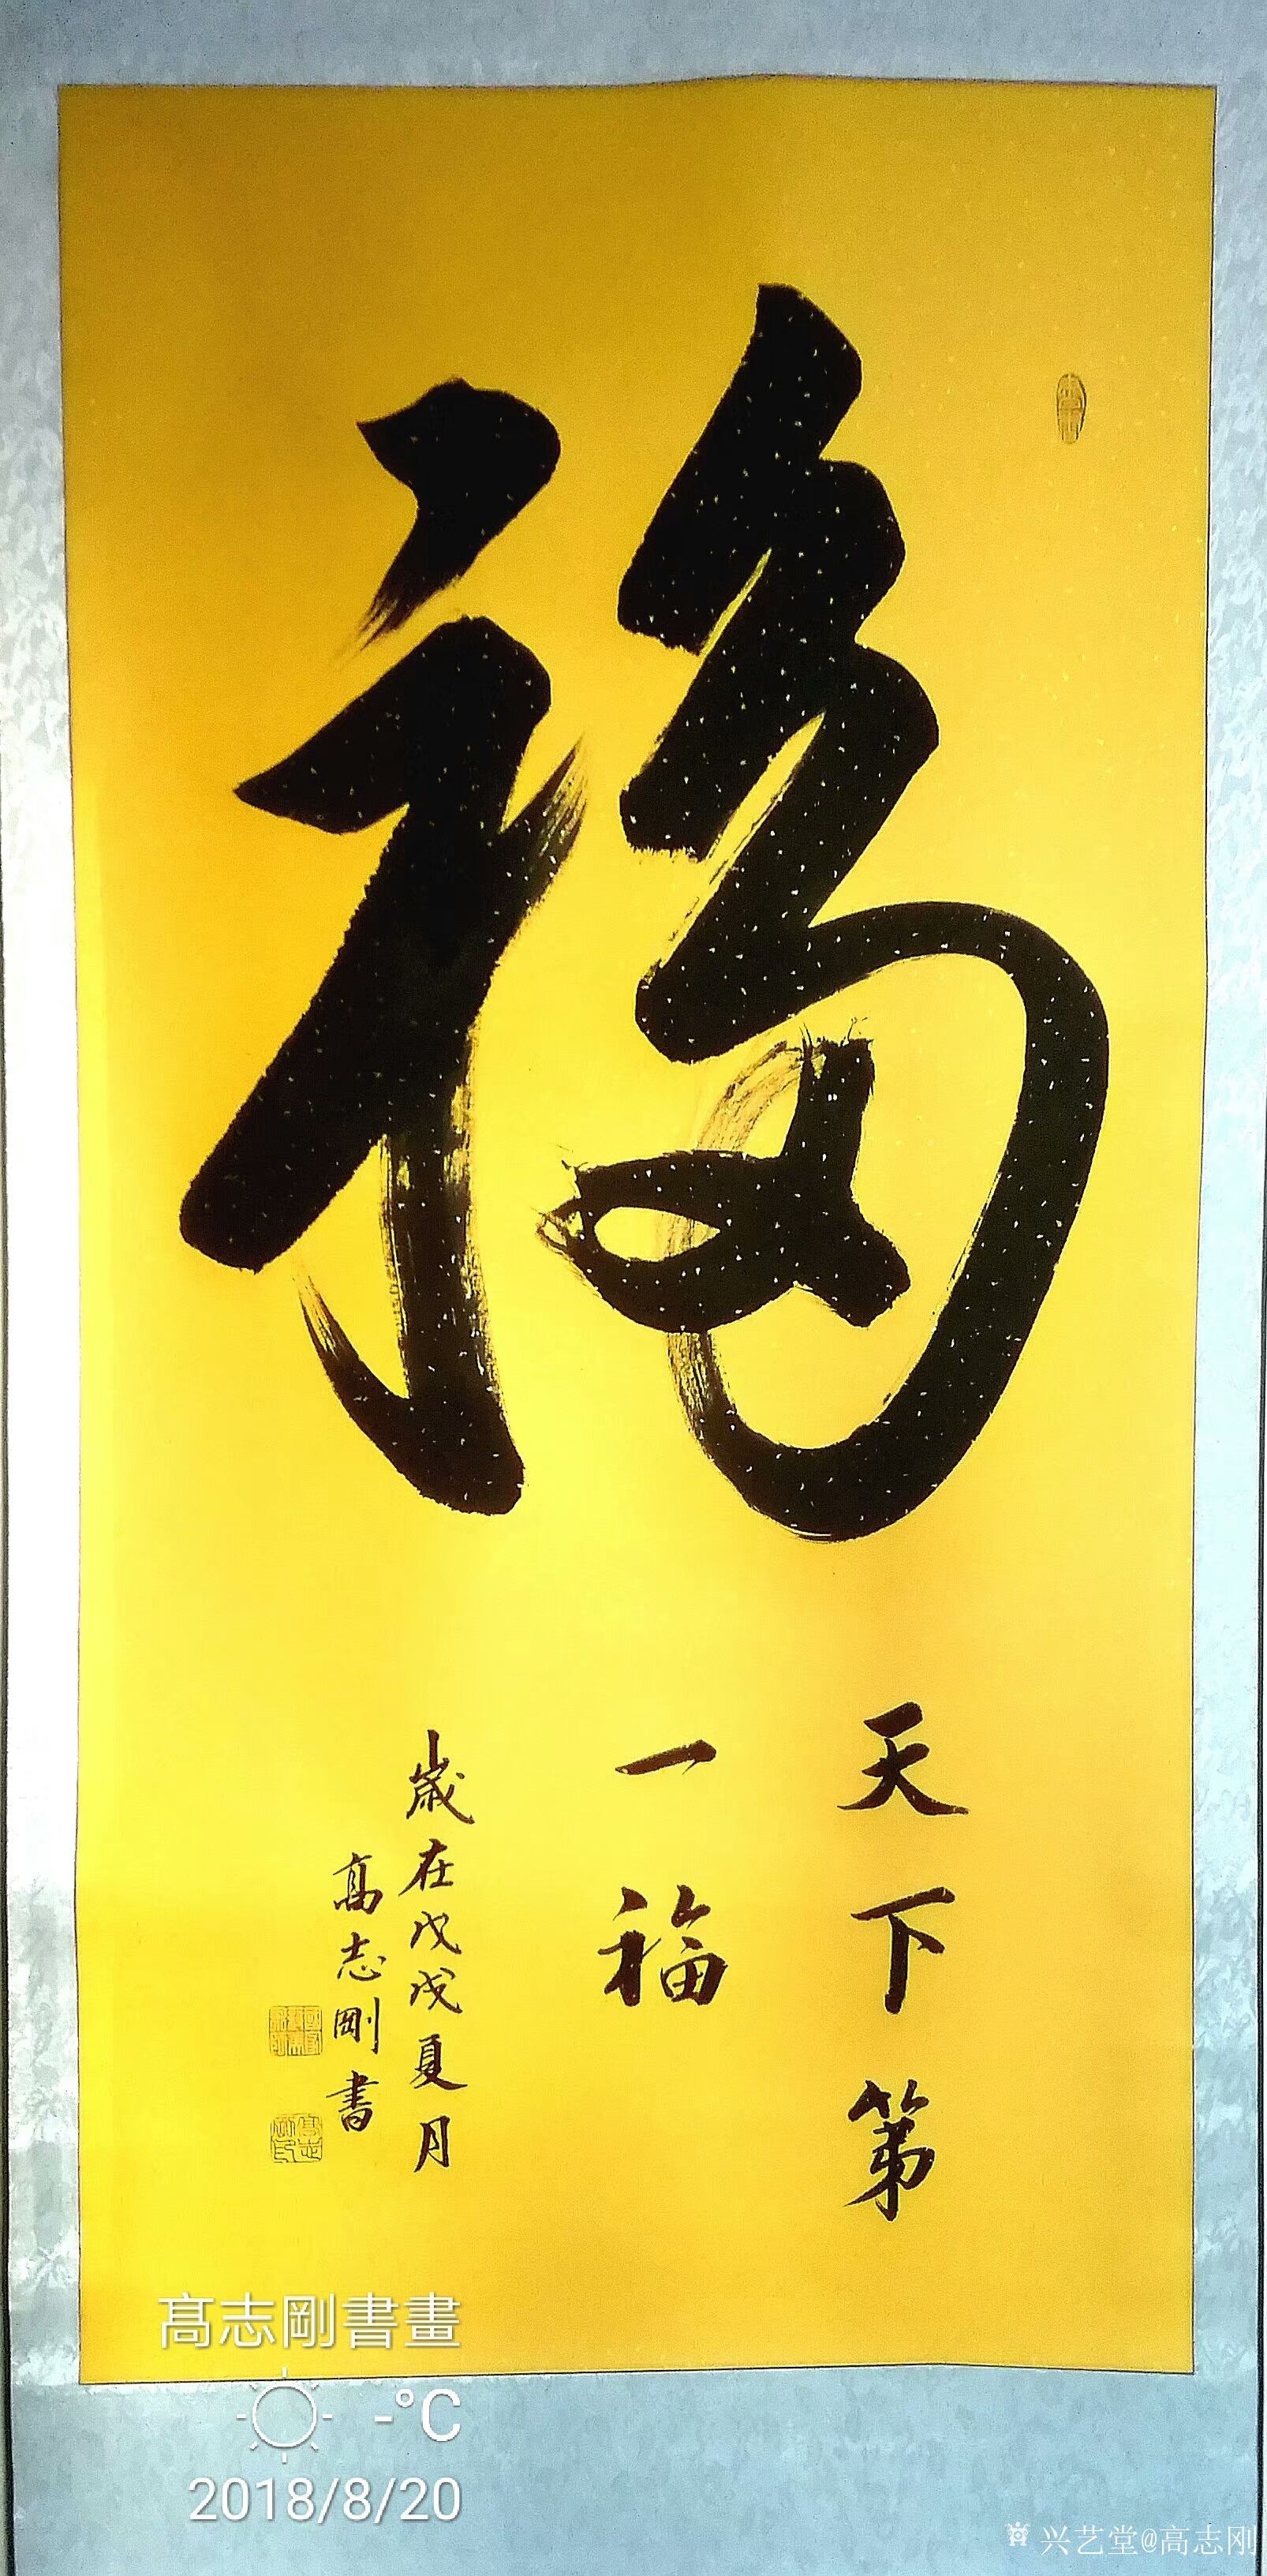 福
天下第
一福
歲在戊戌夏月
高志剛書
髙志剛書畫
-°C
2018/8/20
兴艺堂@高志刚